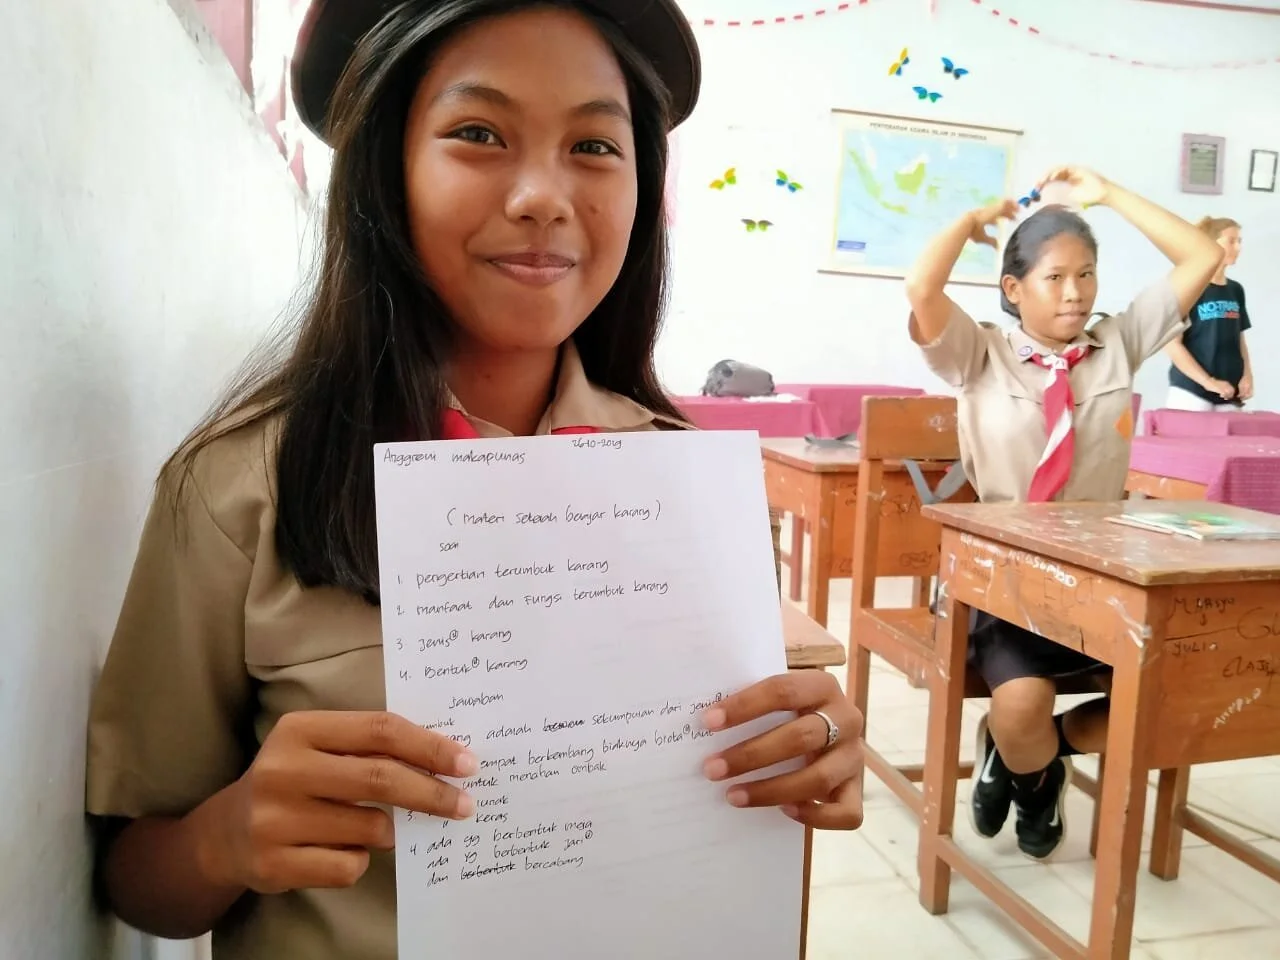 Anggreni makapunas
26-10-2019
( Materi Setelah benjar karang )
soal
1. pengertian terumbuk karang
2. manfaat dan Fungsi terumbuk karang
3. Jenis② karang
4. Bentuk② karang
Jawaban
umbuk
ang adalah sekumpulan dari jenis②
empat berkembang biaknya biota② laut
untuk menahan ombak
3. lunak
" keras
4 ada yg berbentuk meja
ada yg berbentuk Jari②
dan berbentuk bercabang
PENYEBARAN AGAMA ISLAM DI INDONESIA
NO-TRASH
MARSYO
JULI